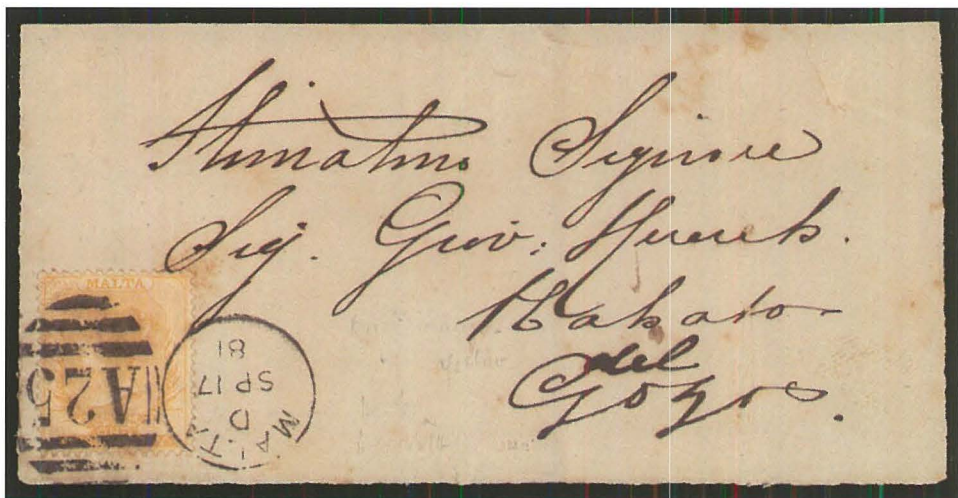 Stimatmo Signore
Sig. Giov:
Rabato
del
Gozo.
MALTA
A25
MALTA
D
SP 17
81